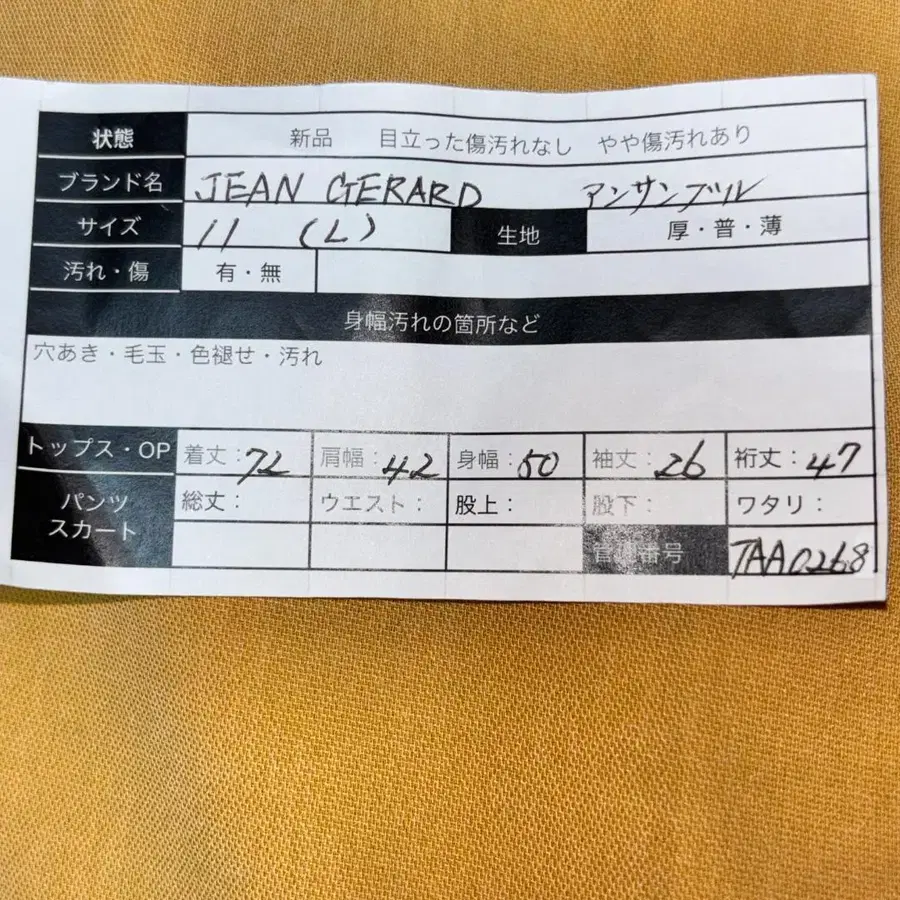 状態 新品 目立った傷汚れなし やや傷汚れあり
ブランド名 JEAN GERARD アンサンブル
サイズ 11 (L) 生地 厚・普・薄
汚れ・傷 有・無
身幅汚れの箇所など
穴あき・毛玉・色褪せ・汚れ
トップス・OP 着丈:72 肩幅:42 身幅:50 袖丈:26 裄丈:47
パンツ スカート 総丈: ウエスト: 股上: 股下: ワタリ:
管理番号 TAA0268